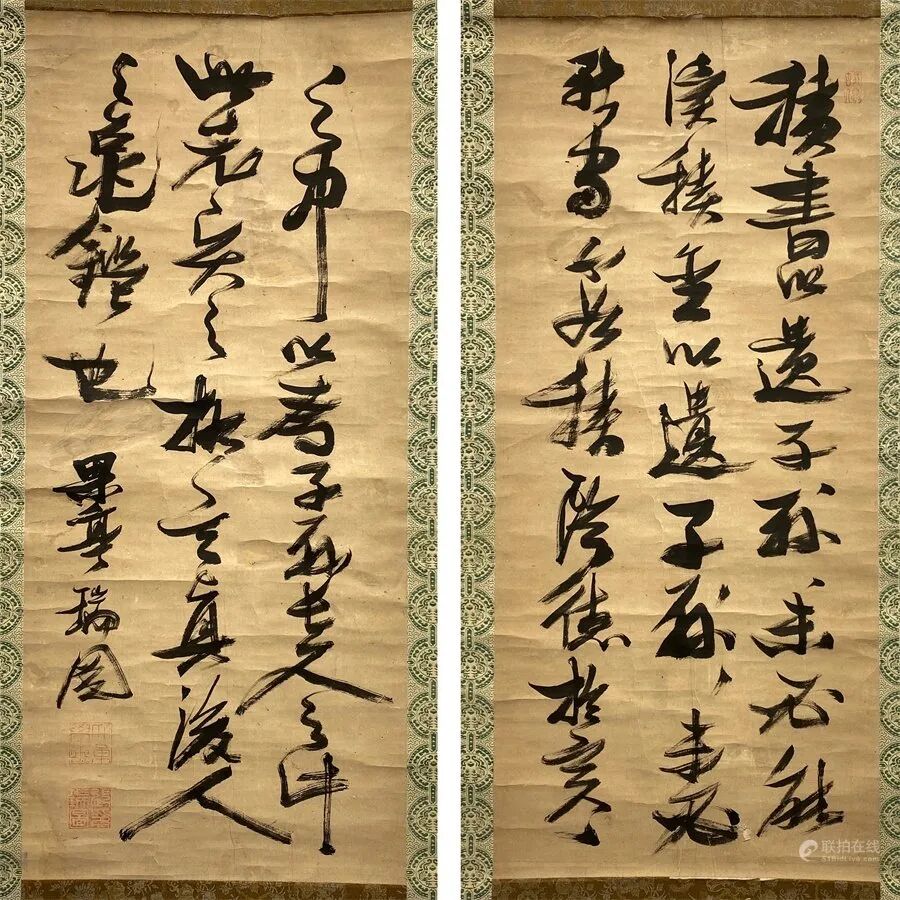 積書以遺子孫未必能
讀積金以遺子孫未必
能守不如積陰德於冥冥
之中以為子孫長久之計
此之格言真後人
之龜鑑也
果亭瑞圖
联拍在线
51bidlive.com